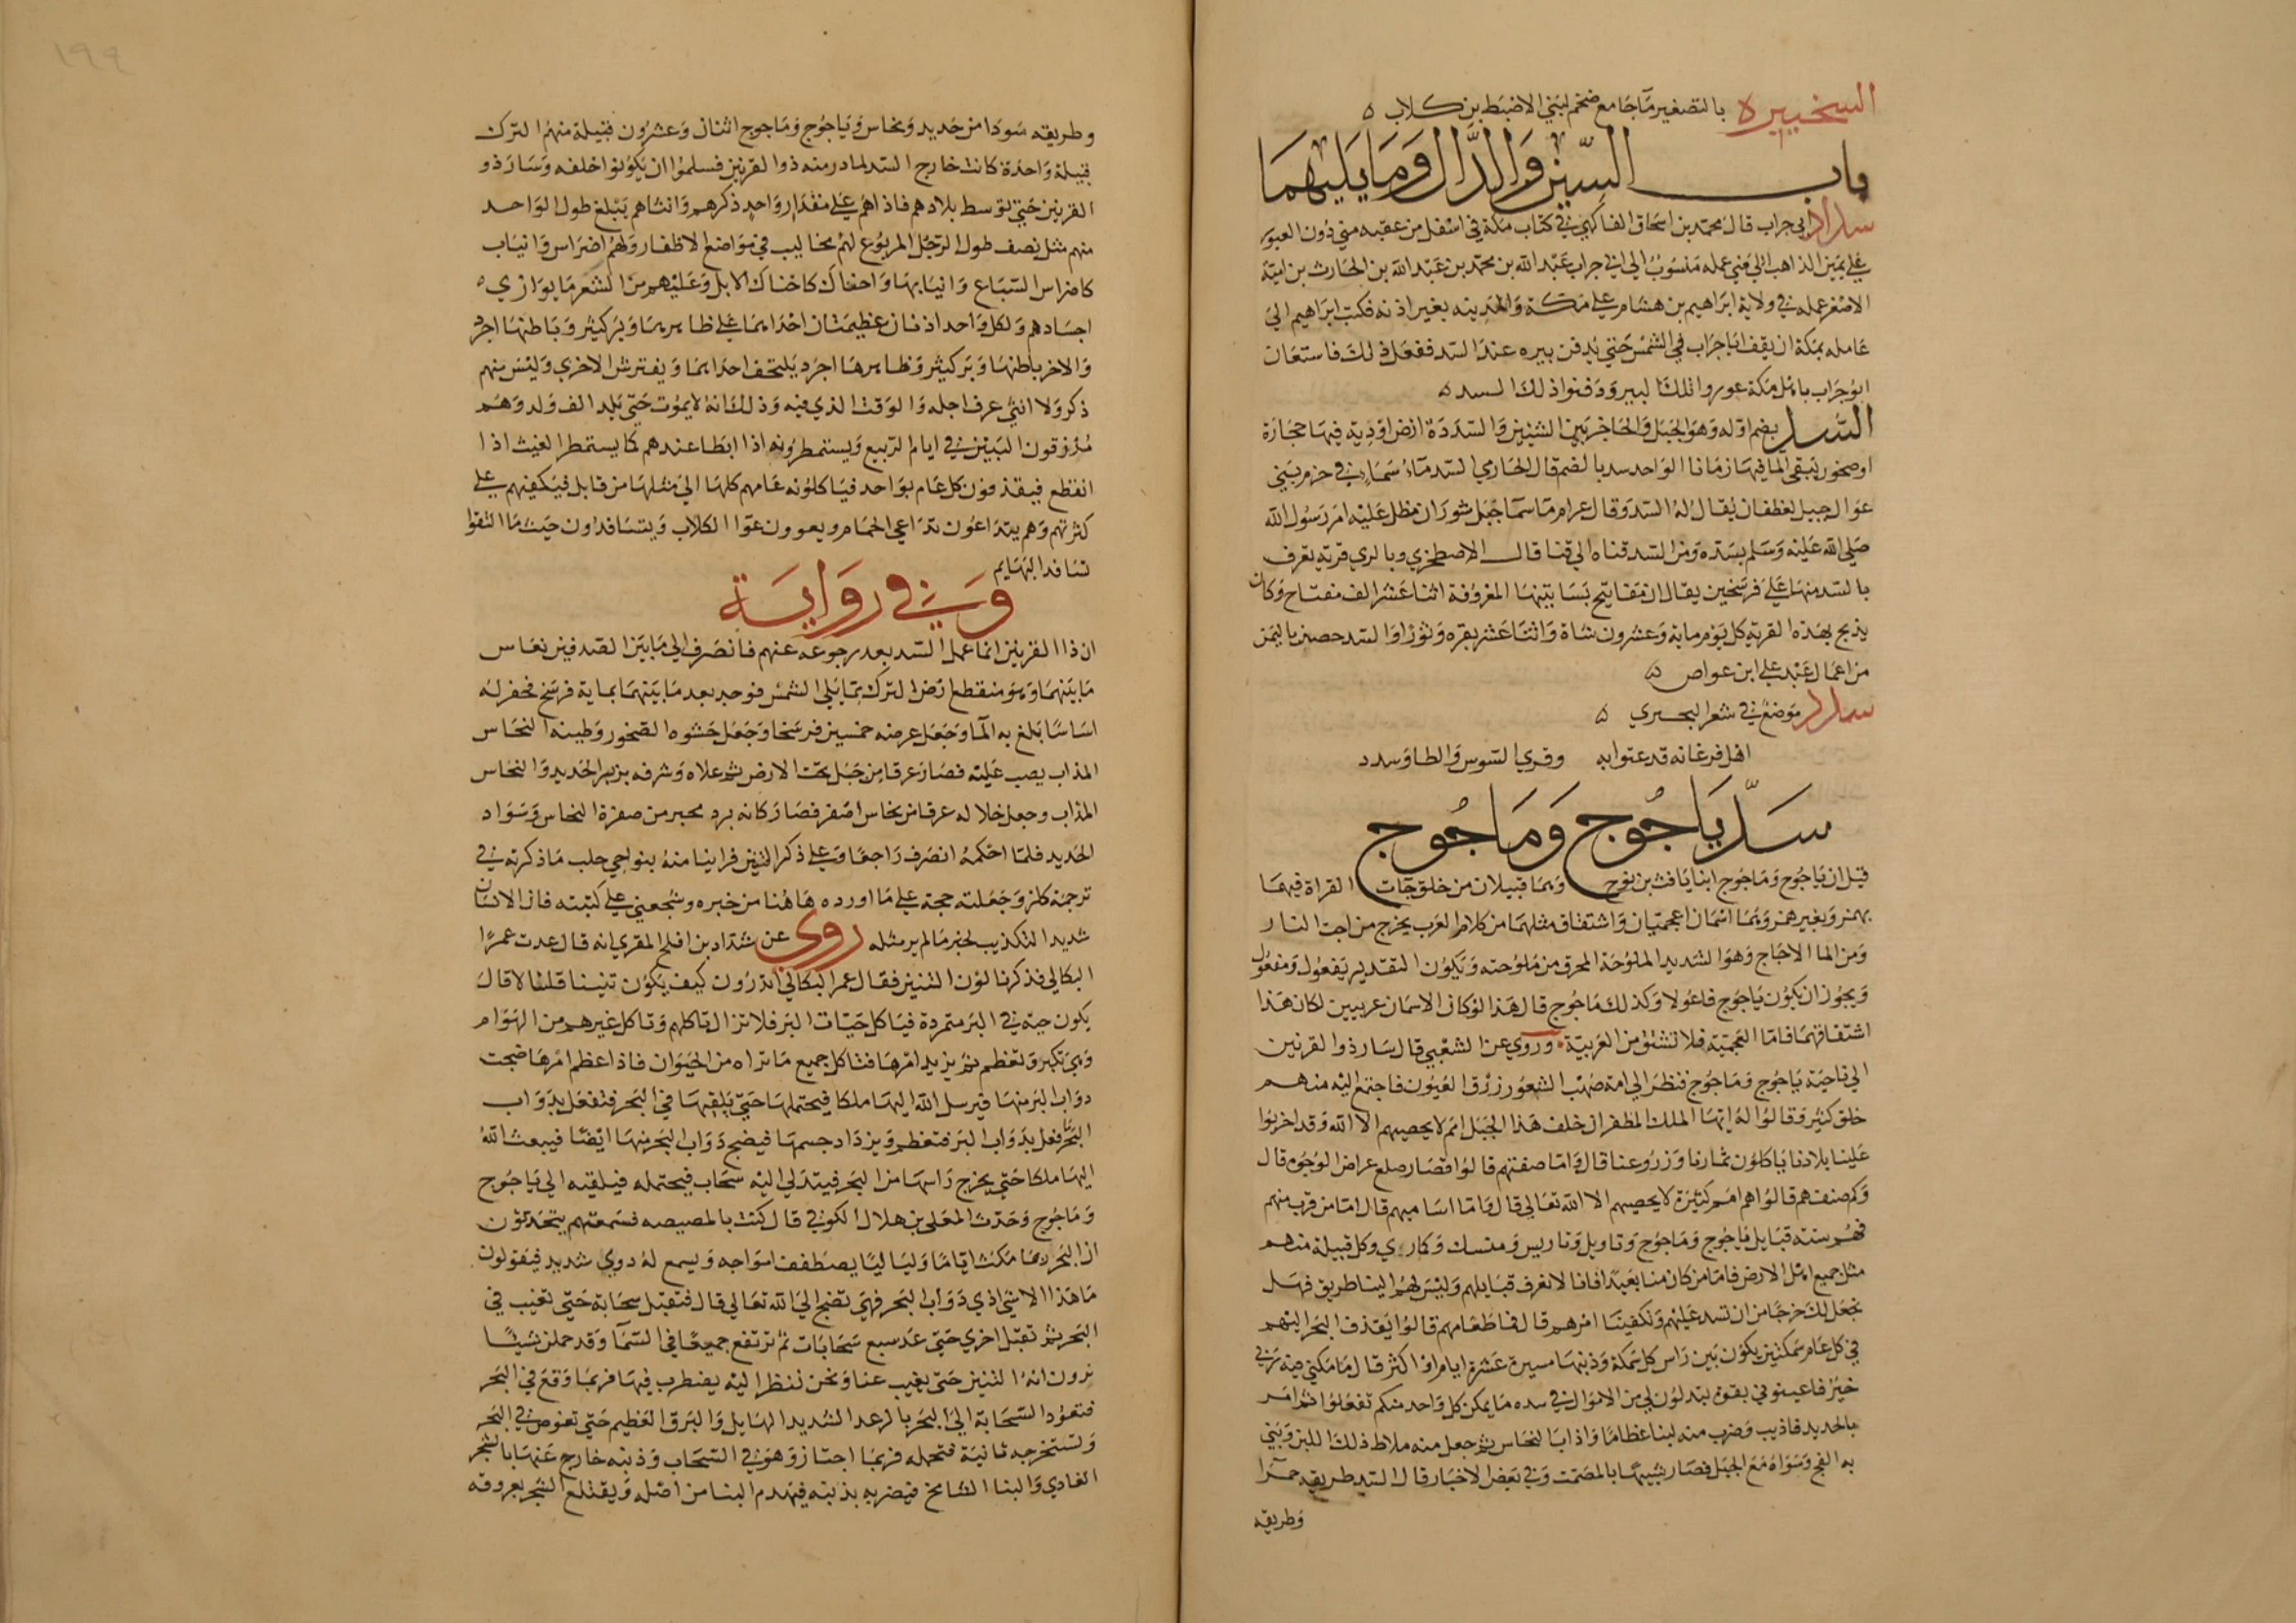 السخيبره بالتصغير ماء جامع ضخم لبني الاضبط بن كلاب ه
باب السين والدال وما يليهما
سداد ابي جراب قال محمد بن اسحاق الفاكهي في كتاب مكة في اسفل من عقبه منى دون العبور
على يمين الذاهب الى منى عمله منسوب الى ابي جراب عبد الله بن محمد بن عبد الله بن الحارث بن امية
الاصغر عمله في ولاية ابراهيم بن هشام على مكة والمدينه بغير اذنه فكتب ابراهيم الى
عامله بمكة ان يقف ابا جراب في الشمس حتى يدفن بيره عند السد ففعل ذلك فاستعان
ابو جراب باهل مكة عوروا تلك البير ودفنوا ذلك السد ه
السد بضم اوله وهو الجبل والحاجز بين الشيئين والسددة ارض اودية فيها حجارة
او صخور يبقى الما فيها زمانا الواحد سد بالضم قال الحازمي السد ماء سماء في حزم بني
عوال جبيل لغطفان يقال له السد وقال عرام ما سما جبل شوران مطل عليه امر رسول الله
صلى الله عليه وسلم بسده ومن السد قناة الى قبا قال الاصطخري وبالري قرية تعرف
بالسد منها على فرسخين يقال ان مفاتيح بساتينها المعروفة اثنا عشر الف مفتاح وكان
يذبح بهذه القرية كل يوم ماية وعشرون شاة واثنا عشر بقره وثورا والسد حصن باليمن
من اعمال عبد علي ابن عواص ه
سدد موضع في شعر البحتري ه
اهل فرغانه قد عنوا به وقرى السوس والطا وسدد
سد ياجوج وماجوج
قيل ان ياجوج وماجوج ابنا يافث بن نوح وهما قبيلان من خلق جات القراة فيهما
بهمز وبغير همز وهما اسمان اعجميان واشتقاق مثلهما من كلام العرب يخرج من اجت النار
ومن الما الاجاج وهو الشديد الملوحة المحرق من ملوحته ويكون التقدير يفعول ومفعول
ويجوز ان يكون ياجوج فاعولا وكذلك ماجوج قال هذا لو كان الاسمان عربيين لكان هذا
اشتقاقهما فاما العجمية فلا تشتق من العربية وروي عن الشعبي قال سار ذو القرنين
الى ناحية ياجوج وماجوج فنظر الى امة صهب الشعور زرق العيون فاجتمع اليه منهم
خلق كثير وقالوا له ايها الملك المظفر ان خلف هذا الجبل امم لا يحصيهم الا الله وقد اخربوا
علينا بلادنا ياكلون ثمارنا وزروعنا قال واما صفتهم قالوا قصار صلع عراض الوجوه قال
وكم صنف هم قالوا هم امم كثيرة لا يحصيهم الا الله تعالى قال فاما اساميهم قال اما من قرب منهم
فهم ستة قبايل ياجوج وماجوج وتاويل وتاريس ومنسك وكمارى وكل قبيلة منهم
مثل جميع اهل الارض فاما من كان منا بعيدا فانا لا نعرف قبايلهم وليس لهم الينا طريق فهل
نجعل لك خرجا من ان تسد عليهم وتكفينا امرهم قال فما طعامهم قالوا يقذف البحر اليهم
في كل عام سمكتين يكون بين راس كل سمكة وذنبها مسيرة عشرة ايام او اكثر قال ما مكني فيه ربي
خير فاعينوني بقوة تبذلون لي من الاموال في سده ما يمكن كل واحد منكم ففعلوا ثم امر
بالحديد فاذيب وضرب منه لبنا عظاما واذاب النحاس ثم جعل منه ملاط ذلك اللبن وبنى
به الفج وسواه مع الجبل فصار شبيها بالمصمت وفي بعض الاخبار قال السد طريقه حمرا
وطريقه
١٩٩
وطريقه سودا من حديد ونحاس وياجوج وماجوج اثنان وعشرون قبيلة منهم الترك
قبيلة واحدة كانت خارج السد لما ردمه ذو القرنين فسلموا ان يكونوا خلفه وسار ذو
القرنين حتى توسط بلادهم فاذا هم على مقدار واحد ذكرهم وانثاهم يبلغ طول الواحد
منهم مثل نصف طول الرجل المربوع لهم مخاليب في مواضع الاظفار ولهم اضراس وانياب
كاضراس السباع وانيابها واحناك كاحناك الابل وعليهم من الشعر ما يوازي
اجسادهم ولكل واحد اذنان عظيمتان احداهما على ظاهرها وبر كثير وباطنها اجرد
والاخر باطنها وبر كثير وظاهرها اجرد يلتحف احداهما ويفترش الاخرى وليس منهم
ذكر ولا انثى عرف اجله والوقت الذي فيه وذلك انه لا يموت حتى يلد الف ولد وهم
يرزقون التنين في ايام الربيع ويستمطرونه اذا ابطا عندهم كما يستمطر الغيث اذا
انقطع فيقذفون كل عام بواحد فياكلونه عامهم كلها الى مثلها من قابل فيكفيهم على
كثرتهم وهم يتداعون تداعي الحمام ويعوون عوا الكلاب ويتسافدون حيث ما التقوا
تسافد البهايم
وفي رواية
ان ذا القرنين انما عمل السد بعد رجوعه عنهم فانصرف الى ما بين الصدفين فقاس
ما بينهما وهو منقطع ارض الترك مما يلي الشمس فوجد بعد ما بينهما ماية فرسخ فحفر له
اساسا بلغ به الما وجعل عرضه خمسين فرسخا وجعل حشوه الصخور وطينه النحاس
المذاب يصب عليه فصار عرقا من جبل تحت الارض ثم علاه وشرفه بزبر الحديد والنحاس
المذاب وجعل خلاله عرقا من نحاس اصفر فصار كانه برد محبر من صفرة النحاس وسواد
الحديد فلما احكمه انصرف راجعا وعلى ذكر التنين فراينا منه بنواحي حلب ما ذكرته في
ترجمة كلز وجعلته حجة على ما اورده هاهنا من خبره وشجعني على كتبته فان الانسان
شديد التكذيب لخبر ما لم ير مثله روى عن شداد بن افلح المقري انه قال عدت عمرا
البكالي فذكرنا لون التنين فقال عمر البكالي اتدرون كيف يكون تنينا قلنا لا قال
يكون حية في البر متمردة فياكل حيات البر فلا تزال تاكلهم وتاكل غيرهم من الهوام
وهي تكبر وتعظم ثم يزيد امرها فتاكل جميع ما تراه من الحيوان فاذا اعظم امرها ضجت
دواب البر منها فيرسل الله اليها ملكا فيحتملها حتى يلقيها في البحر فتفعل بدواب
البحر فعل بدواب البر فتعظم ويزداد جسمها فيضج دواب البحر منها ايضا فيبعث الله
اليها ملكا حتى يخرج راسها من البحر فيتدلى اليه سحاب فيحتمله فيلقيه الى ياجوج
وماجوج وحدث المعلى بن هلال الكوفي قال كنت بالمصيصه فسمعتهم يتحدثون
ان البحر ربما مكث اياما ولياليا يصطفف امواجه ويسمع له دوي شديد فيقولون
ما هذا الا شي اذى دواب البحر فهي تضج الى الله تعالى قال فتقبل سحابة حتى تغيب في
البحر ثم تقبل اخرى حتى عد سبع سحابات ثم ترتفع جميعا في السما وقد حملن شيئا
يرون انه التنين حتى يغيب عنا ونحن ننظر اليه يضطرب فيها فربما وقع في البحر
فتعود السحابة الى البحر بالرعد الشديد الهايل والبرق العظيم حتى تغوص في البحر
وتستخرجه ثانية فتحمله فربما اجتاز وهو في السحاب وذنبه خارج عنها بالشجر
العادي والبنا الشامخ فيضربه بذنبه فيهدم البنا من اصله ويقتلع الشجر بعروقه